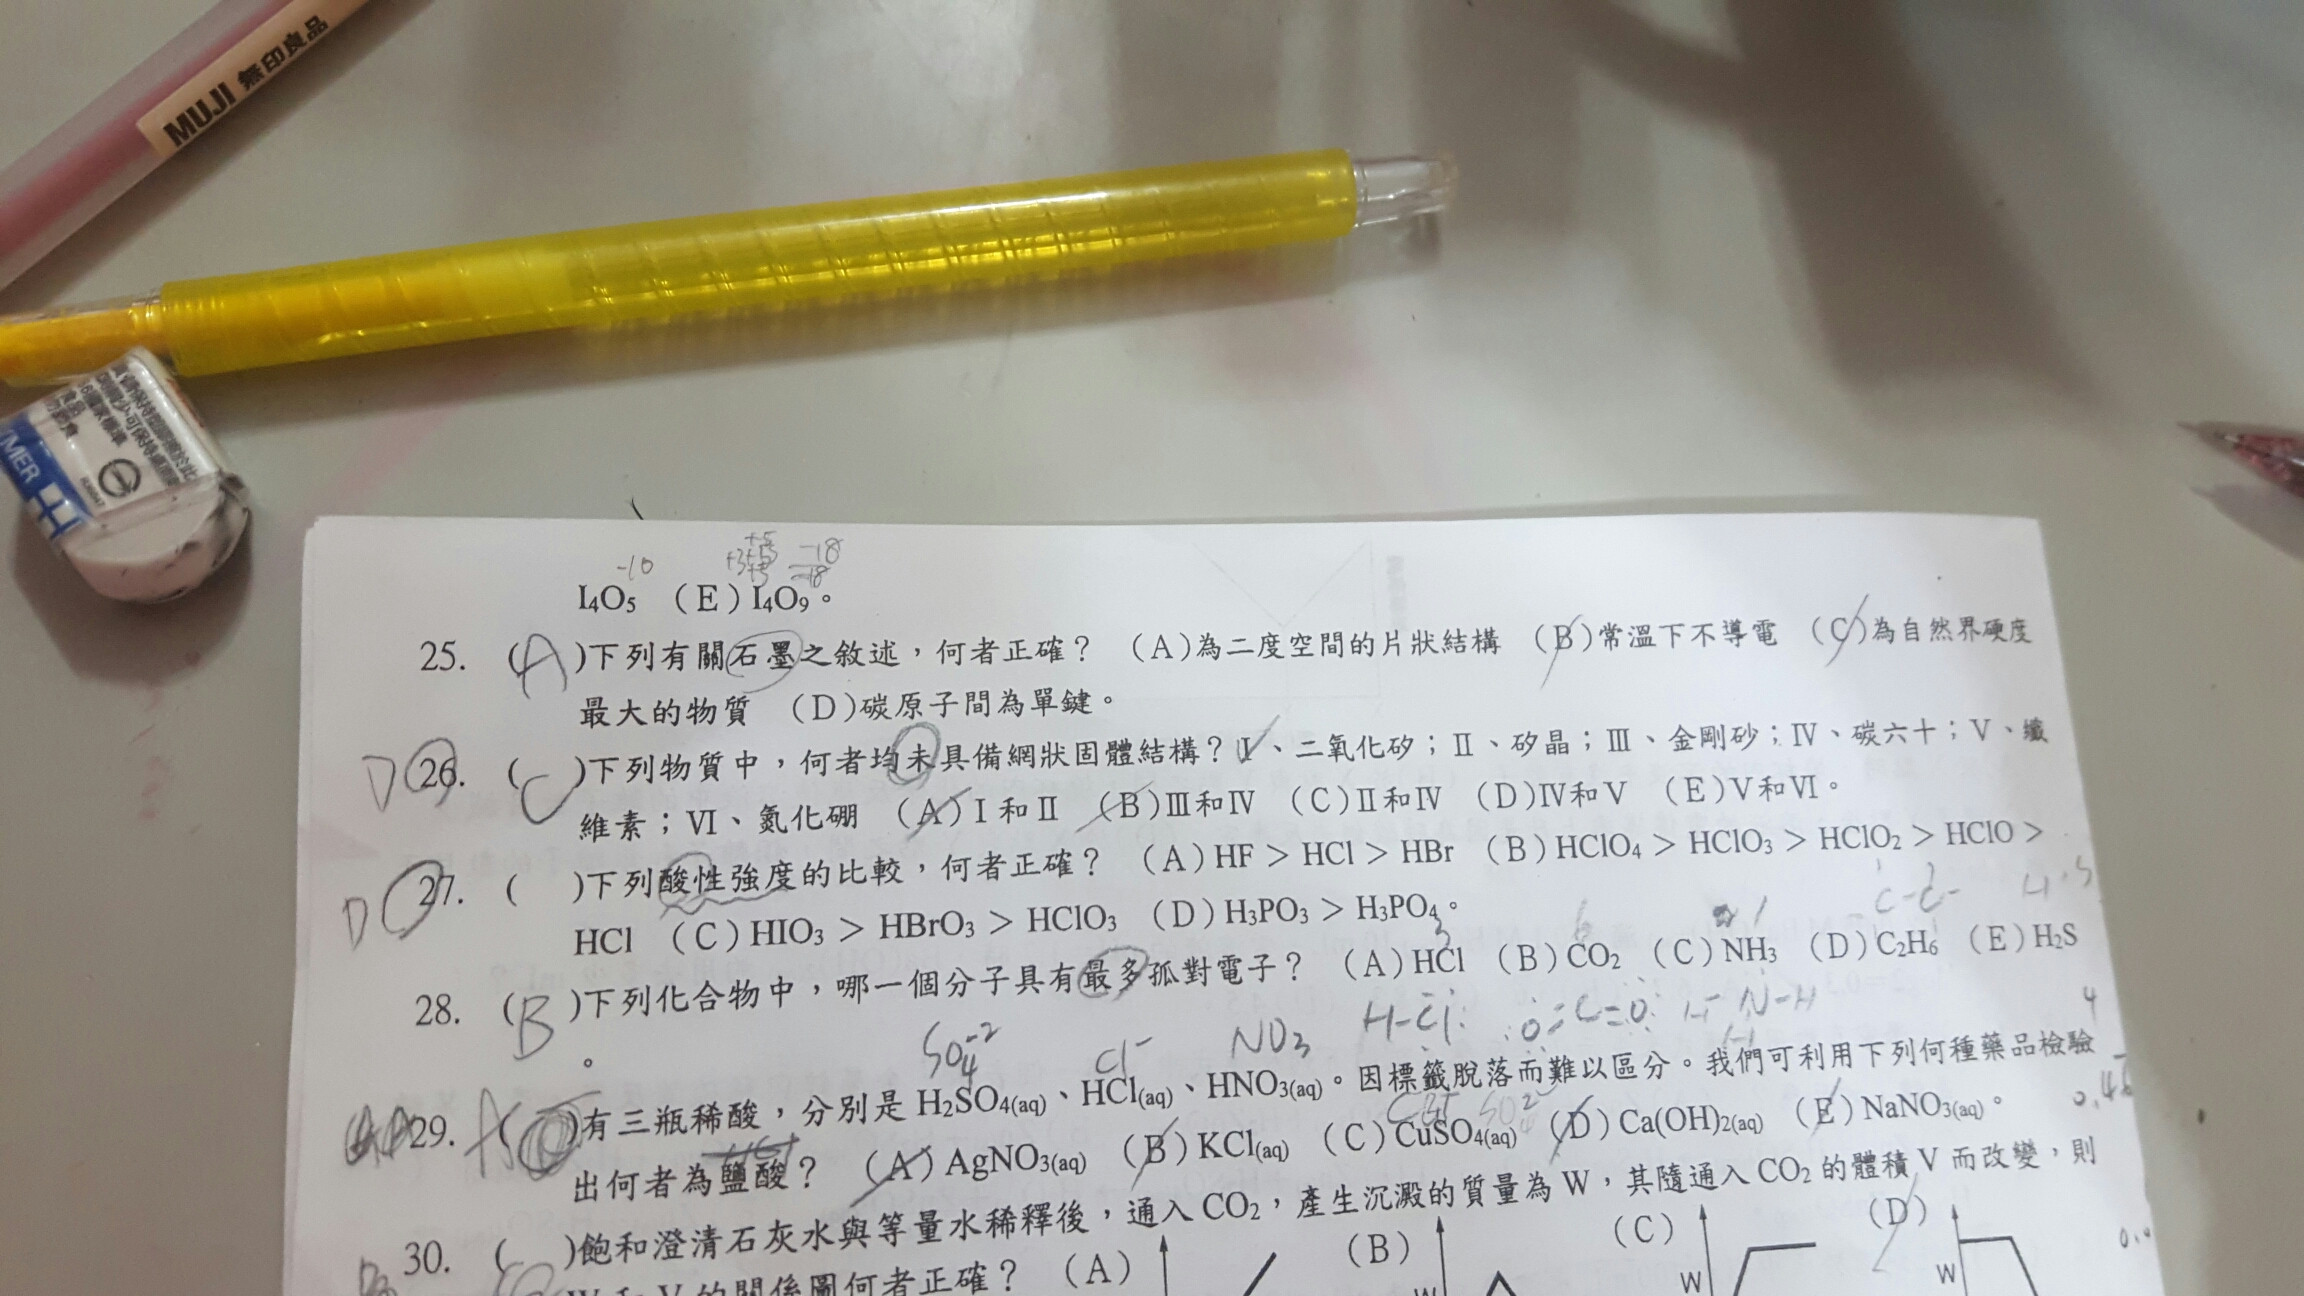 MUJI 無印良品
-10
+5
-18
-18
I₄O₅ (E)I₄O₉。
25. (A)下列有關石墨之敘述,何者正確? (A)為二度空間的片狀結構 (B)常溫下不導電 (C)為自然界硬度
最大的物質 (D)碳原子間為單鍵。
D 26. (C)下列物質中,何者均未具備網狀固體結構?Ⅰ、二氧化矽;Ⅱ、矽晶;Ⅲ、金剛砂;Ⅳ、碳六十;Ⅴ、纖
維素;Ⅵ、氮化硼 (A)Ⅰ和Ⅱ (B)Ⅲ和Ⅳ (C)Ⅱ和Ⅳ (D)Ⅳ和Ⅴ (E)Ⅴ和Ⅵ。
D 27. ( )下列酸性強度的比較,何者正確? (A)HF > HCl > HBr (B)HClO₄ > HClO₃ > HClO₂ > HClO >
HCl (C)HIO₃ > HBrO₃ > HClO₃ (D)H₃PO₃ > H₃PO₄。
3 6 1
28. (B)下列化合物中,哪一個分子具有最多孤對電子? (A)HCl (B)CO₂ (C)NH₃ (D)C₂H₆ (E)H₂S
。
H-Cl O=C=O H-N-H
SO₄⁻² Cl⁻ NO₃
29. A( )有三瓶稀酸,分別是 H₂SO₄(aq)、HCl(aq)、HNO₃(aq)。因標籤脫落而難以區分。我們可利用下列何種藥品檢驗
出何者為鹽酸? (A)AgNO₃(aq) (B)KCl(aq) (C)CuSO₄(aq) (D)Ca(OH)₂(aq) (E)NaNO₃(aq)。
30. ( )飽和澄清石灰水與等量水稀釋後,通入 CO₂,產生沉澱的質量為 W,其隨通入 CO₂ 的體積 V 而改變,則
W 和 V 的關係圖何者正確? (A) (B) (C) (D)
W W W